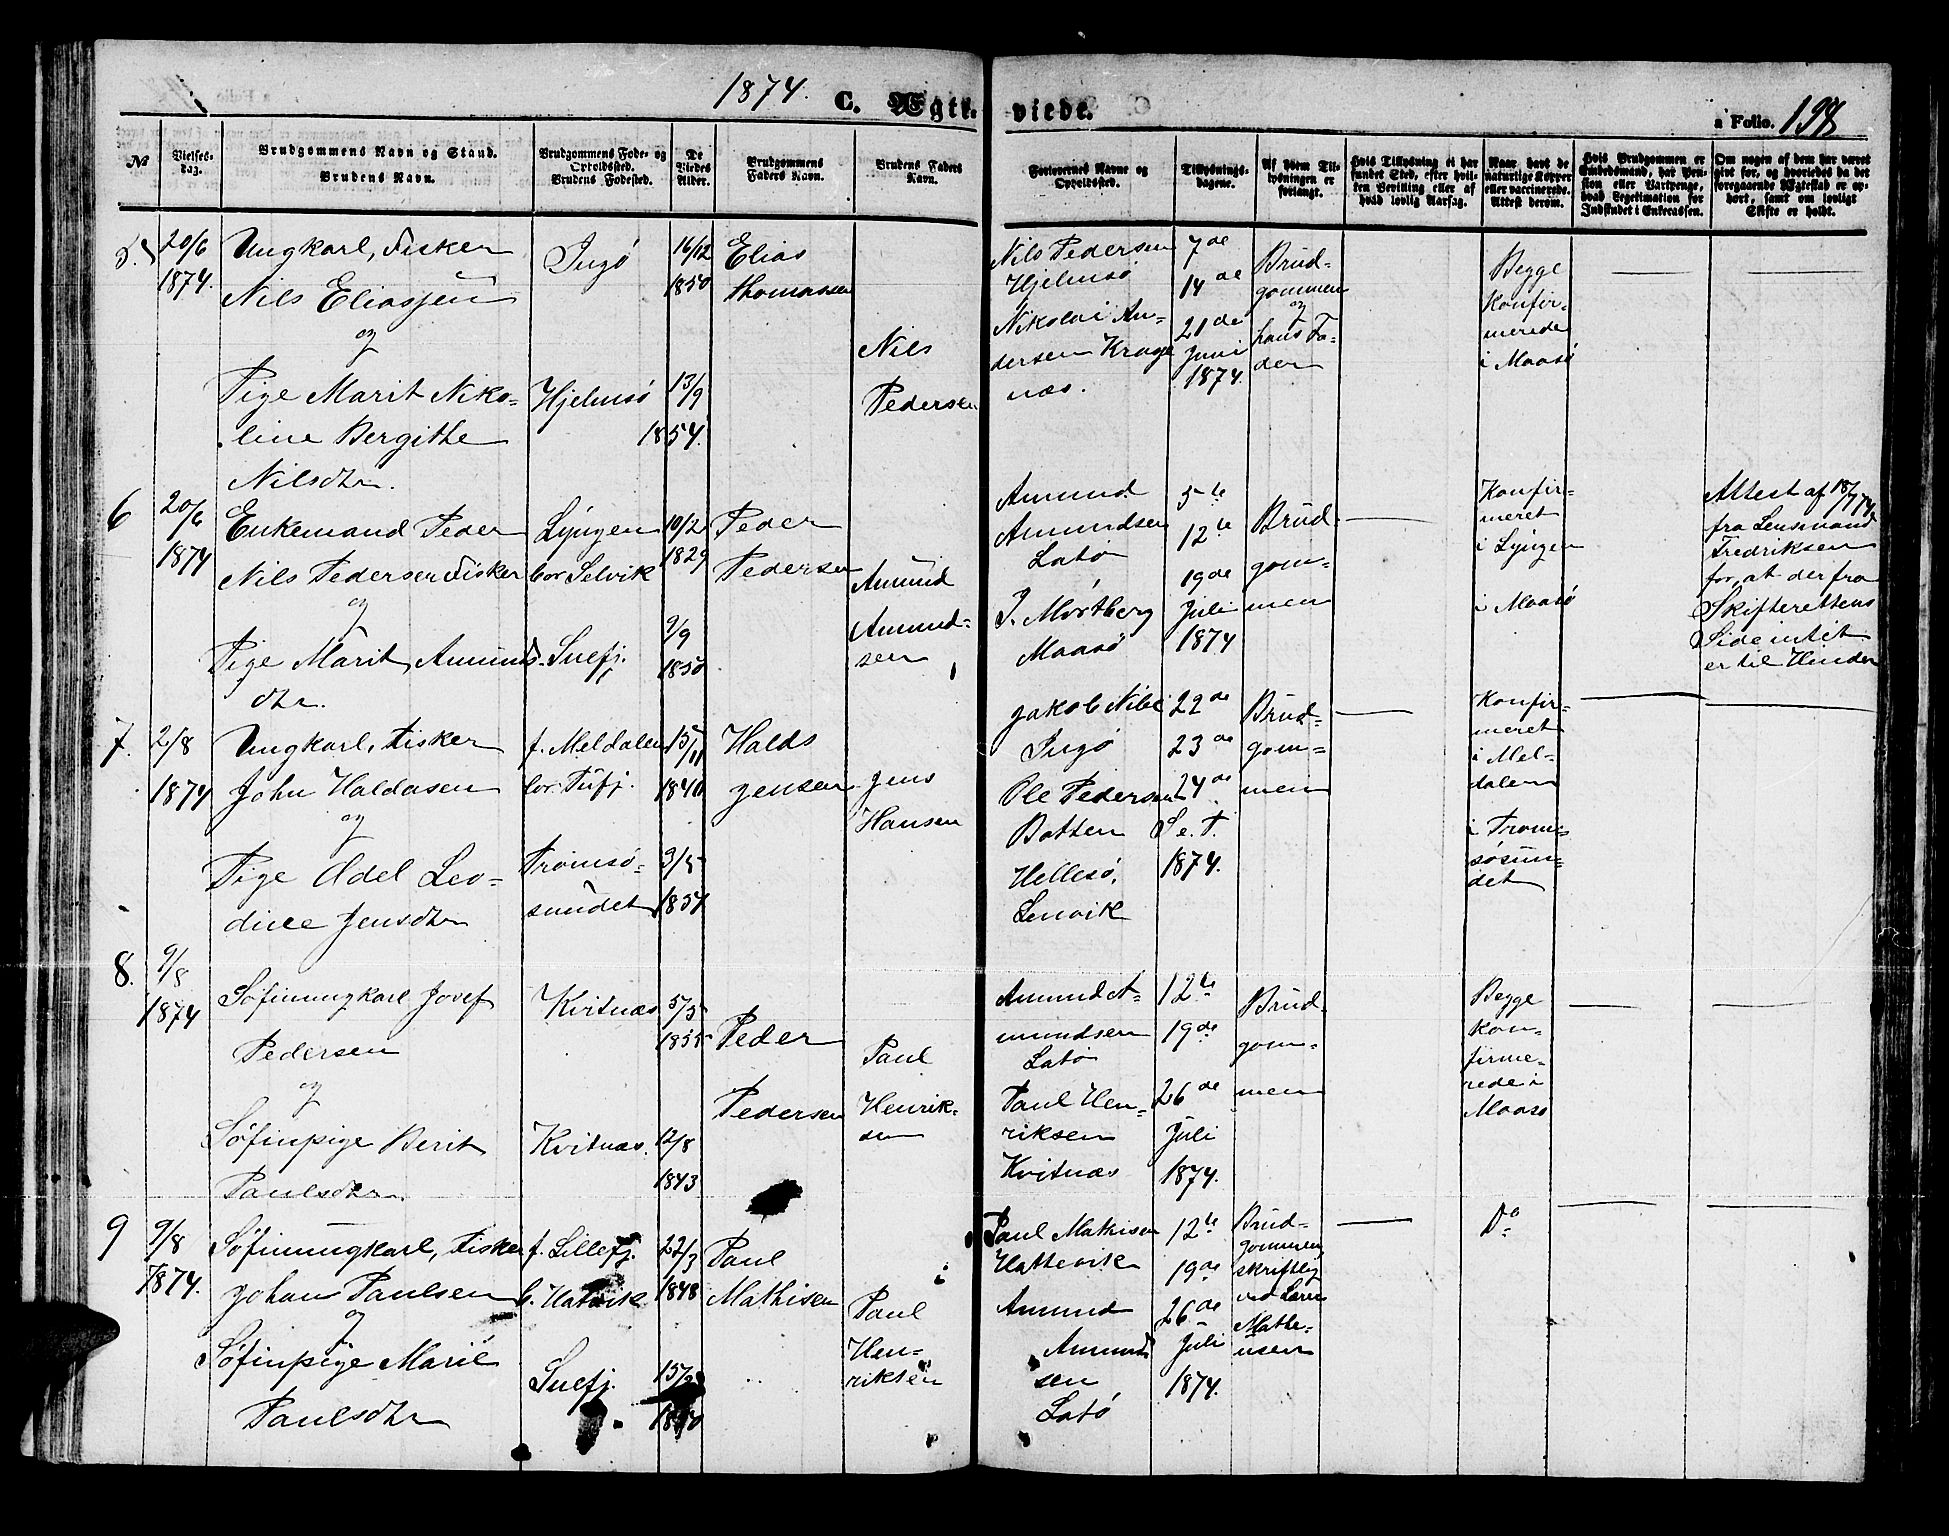 1874. C. Ægte-viede. a Folio. 198
No
Vielses-Dag.
Brudgommens Navn og Stand.
Brudens Navn.
Brudgommens Føde- og
Opholdssted.
Brudens Fødested.
De
Viedes
Alder.
Brudgommens
Faders Navn.
Brudens Faders
Navn.
Forlovernes Navne og
Opholdssted.
Tillysnings-
dagene.
Af hvem Til-
lysningen er
forlangt.
Hvis Tillysning ei har
fundet Sted, efter hvil-
ken Bevilling eller af
hvad lovlig Aarsag.
Naar havt de
naturlige Kopper
eller vaccinerede.
Attest derom.
Hvis Brudgommen er
Embedsmand, har Pen-
sion eller Vartpenge,
hvad Legitimation for
Indskudet i Enkecassen.
Om nogen af dem har været
gift før, og hvorledes da det
foregaaende Ægteskab er op-
hørt, samt om lovligt
Skifte er holdt.
5.
20/6
1874.
Ungkarl, Fisker
Nils Eliassen
og
Pige Marit Niko-
line Bergithe
Nilsdtr.
Ingø
Hjelmsø
16/12
1850
13/9
1854.
Elias
Thomassen
Nils
Pedersen
Nils Pedersen
Hjelmsø
Nikolai An-
dersen Krage
næs.
7de
14de
21de
Juni
1874.
Brud-
gommen
og
hans Fa-
der
Begge
Konfir-
merede
i Maasø
6
20/6
1874
Enkemand Peder
Nils Pedersen Fisker
og
Pige Marit Amunds.
dtr.
Lyngen
bor Selvik
Snefj.
10/2
1829
9/9
1850
Peder
Pedersen
Amund
Amund-
sen
Amund
Amundsen
Latø
J. Mortberg
Maasø
5te
12te
19de
Juli
1874
Brud-
gom-
men
Konfir-
meret
i Lyngen
i Maasø
Attest af 18/7 74
fra Lensmand
Fredriksen
for, at der fra
Skifterettens
Side intet
er til Hinder
7.
2/8
1874
Ungkarl, Fisker
John Haldasen
og
Pige Adel Leo-
dine Jensdtr
f. Meldalen
bor. Tufj.
Tromsø-
sundet
15/11
1840
3/5
1854
Halds
Jensen
Jens
Hansen
Jakob Nibe
Ingø
Ole Pedersen
Botten
Hellesø,
Lenvik
22de
23de
24de
S. e. T.
1874.
Brud-
gom-
men
Konfir-
meret
i Mel-
dalen
i Trom-
søsun-
det
8.
9/8
1874
Søfinungkarl Josef
Pedersen
og
Søfinpige Berit
Paulsdtr
Kvitnæs
Kvitnæs.
5/5
1855
12/8
1843
Peder
Pedersen
Paul
Henrik-
sen
Amund A-
mundsen
Latø
Paul Hen-
riksen
Kvitnæs
12te
19de
26de
Juli
1874.
Brud-
gom-
men
Begge
kon-
firme-
rede i
Maasø
9
9/8
1874.
Søfinungkarl, Fisker
Johan Paulsen
og
Søfinpige Marie
Paulsdtr
f. Lillefj.
b. Hatvik
Snefj.
22/3
1848
Paul
Mathisen
Paul
Hen-
riksen
Paul Mathisen
Hattevik
Amund
Amund
sen
Latø
12te
19de
26de
Juli
1874.
Brud-
gommen
skriftlig
ved Lærer
Mathe-
usen
Do